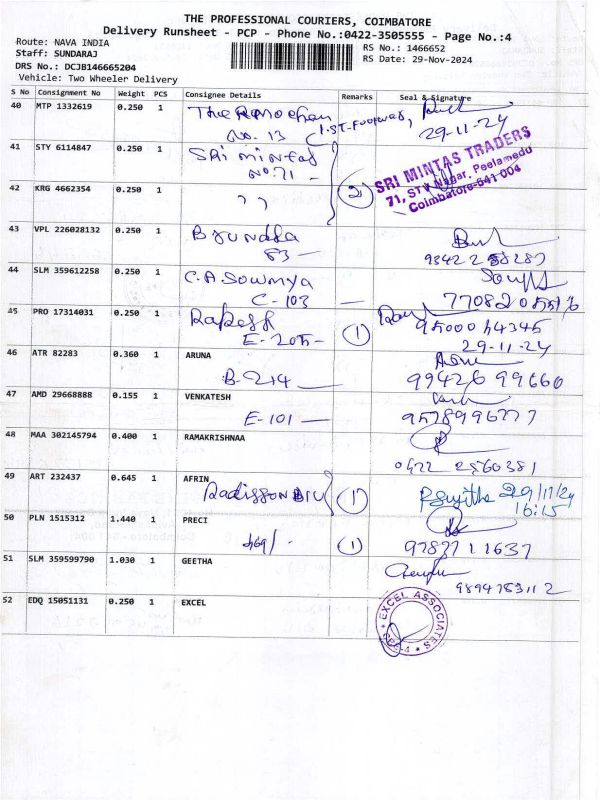 THE PROFESSIONAL COURIERS, COIMBATORE
Delivery Runsheet - PCP - Phone No.:0422-3505555 - Page No.:4
Route: NAVA INDIA
Staff: SUNDARAJ
DRS No.: DCJB146665204
Vehicle: Two Wheeler Delivery
RS No.: 1466652
RS Date: 29-Nov-2024
S No Consignment No Weight PCS Consignee Details Remarks Seal & Signature
40 MTP 1332619 0.250 1
No. 13
29-11-24
41 STY 6114847 0.250 1 Sri mintas
No. 71 -
SRI MINTAS TRADERS
71, Nagar, Peelamedu
Coimbatore-641 004
42 KRG 4662354 0.250 1 ,, (2)
43 VPL 226028132 0.250 1 Brundha
83 -
44 SLM 359612258 0.250 1 C.A Sowmya
C-103 -
45 PRO 17314031 0.250 1 Rakesh
E-205- (1)
29-11-24
46 ATR 82283 0.360 1 ARUNA
B-214 - 99426 99660
47 AMD 29668888 0.155 1 VENKATESH
E-101 - 9578996777
48 MAA 302145794 0.400 1 RAMAKRISHNAA
0422 2560381
49 ART 232437 0.645 1 AFRIN
Radisson Blu (1) 29/11/24
16:15
50 PLN 1515312 1.440 1 PRECI
469/- (1) 9787711637
51 SLM 359599790 1.030 1 GEETHA
9894783112
52 EDQ 15051131 0.250 1 EXCEL
EXCEL ASSOCIATES
CBE-4